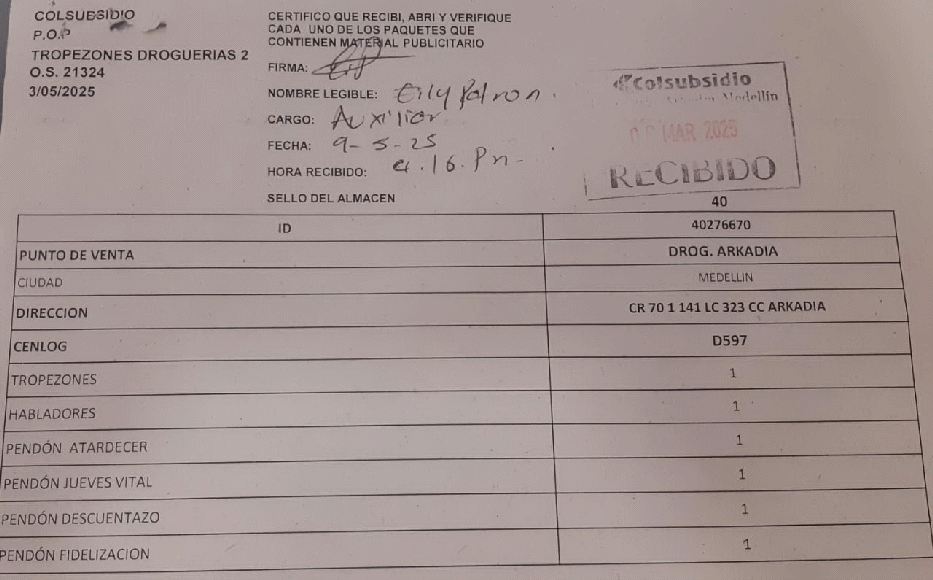 COLSUBSIDIO
P.O.P
TROPEZONES DROGUERIAS 2
O.S. 21324
3/05/2025
CERTIFICO QUE RECIBI, ABRI Y VERIFIQUE
CADA UNO DE LOS PAQUETES QUE
CONTIENEN MATERIAL PUBLICITARIO
FIRMA:
NOMBRE LEGIBLE: Eily Patron.
CARGO: Auxiliar
FECHA: 9-5-25
HORA RECIBIDO: 4.16.Pn-
SELLO DEL ALMACEN
Colsubsidio
Medellin
MAR 2025
RECIBIDO
40
ID 40276670
PUNTO DE VENTA DROG. ARKADIA
CIUDAD MEDELLIN
DIRECCION CR 70 1 141 LC 323 CC ARKADIA
CENLOG D597
TROPEZONES 1
HABLADORES 1
PENDÓN ATARDECER 1
PENDÓN JUEVES VITAL 1
PENDÓN DESCUENTAZO 1
PENDÓN FIDELIZACION 1